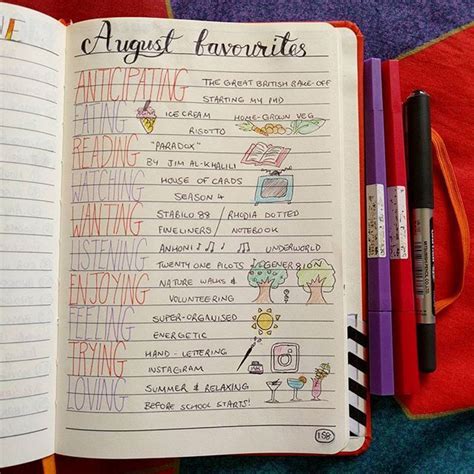 NE
August favourites
ANTICIPATING THE GREAT BRITISH BAKE-OFF
STARTING MY PHD
EATING ICE CREAM HOME-GROWN VEG
RISOTTO
READING "PARADOX"
BY JIM AL-KHALILI
WATCHING HOUSE OF CARDS
SEASON 4
WANTING STABILO 88 / RHODIA DOTTED
FINELINERS / NOTEBOOK
LISTENING ANHONI UNDERWORLD
TWENTY ONE PILOTS GENER8ION
ENJOYING NATURE WALKS &
VOLUNTEERING
FEELING SUPER-ORGANISED
ENERGETIC
TRYING HAND-LETTERING
INSTAGRAM
LOVING SUMMER & RELAXING
BEFORE SCHOOL STARTS!
158